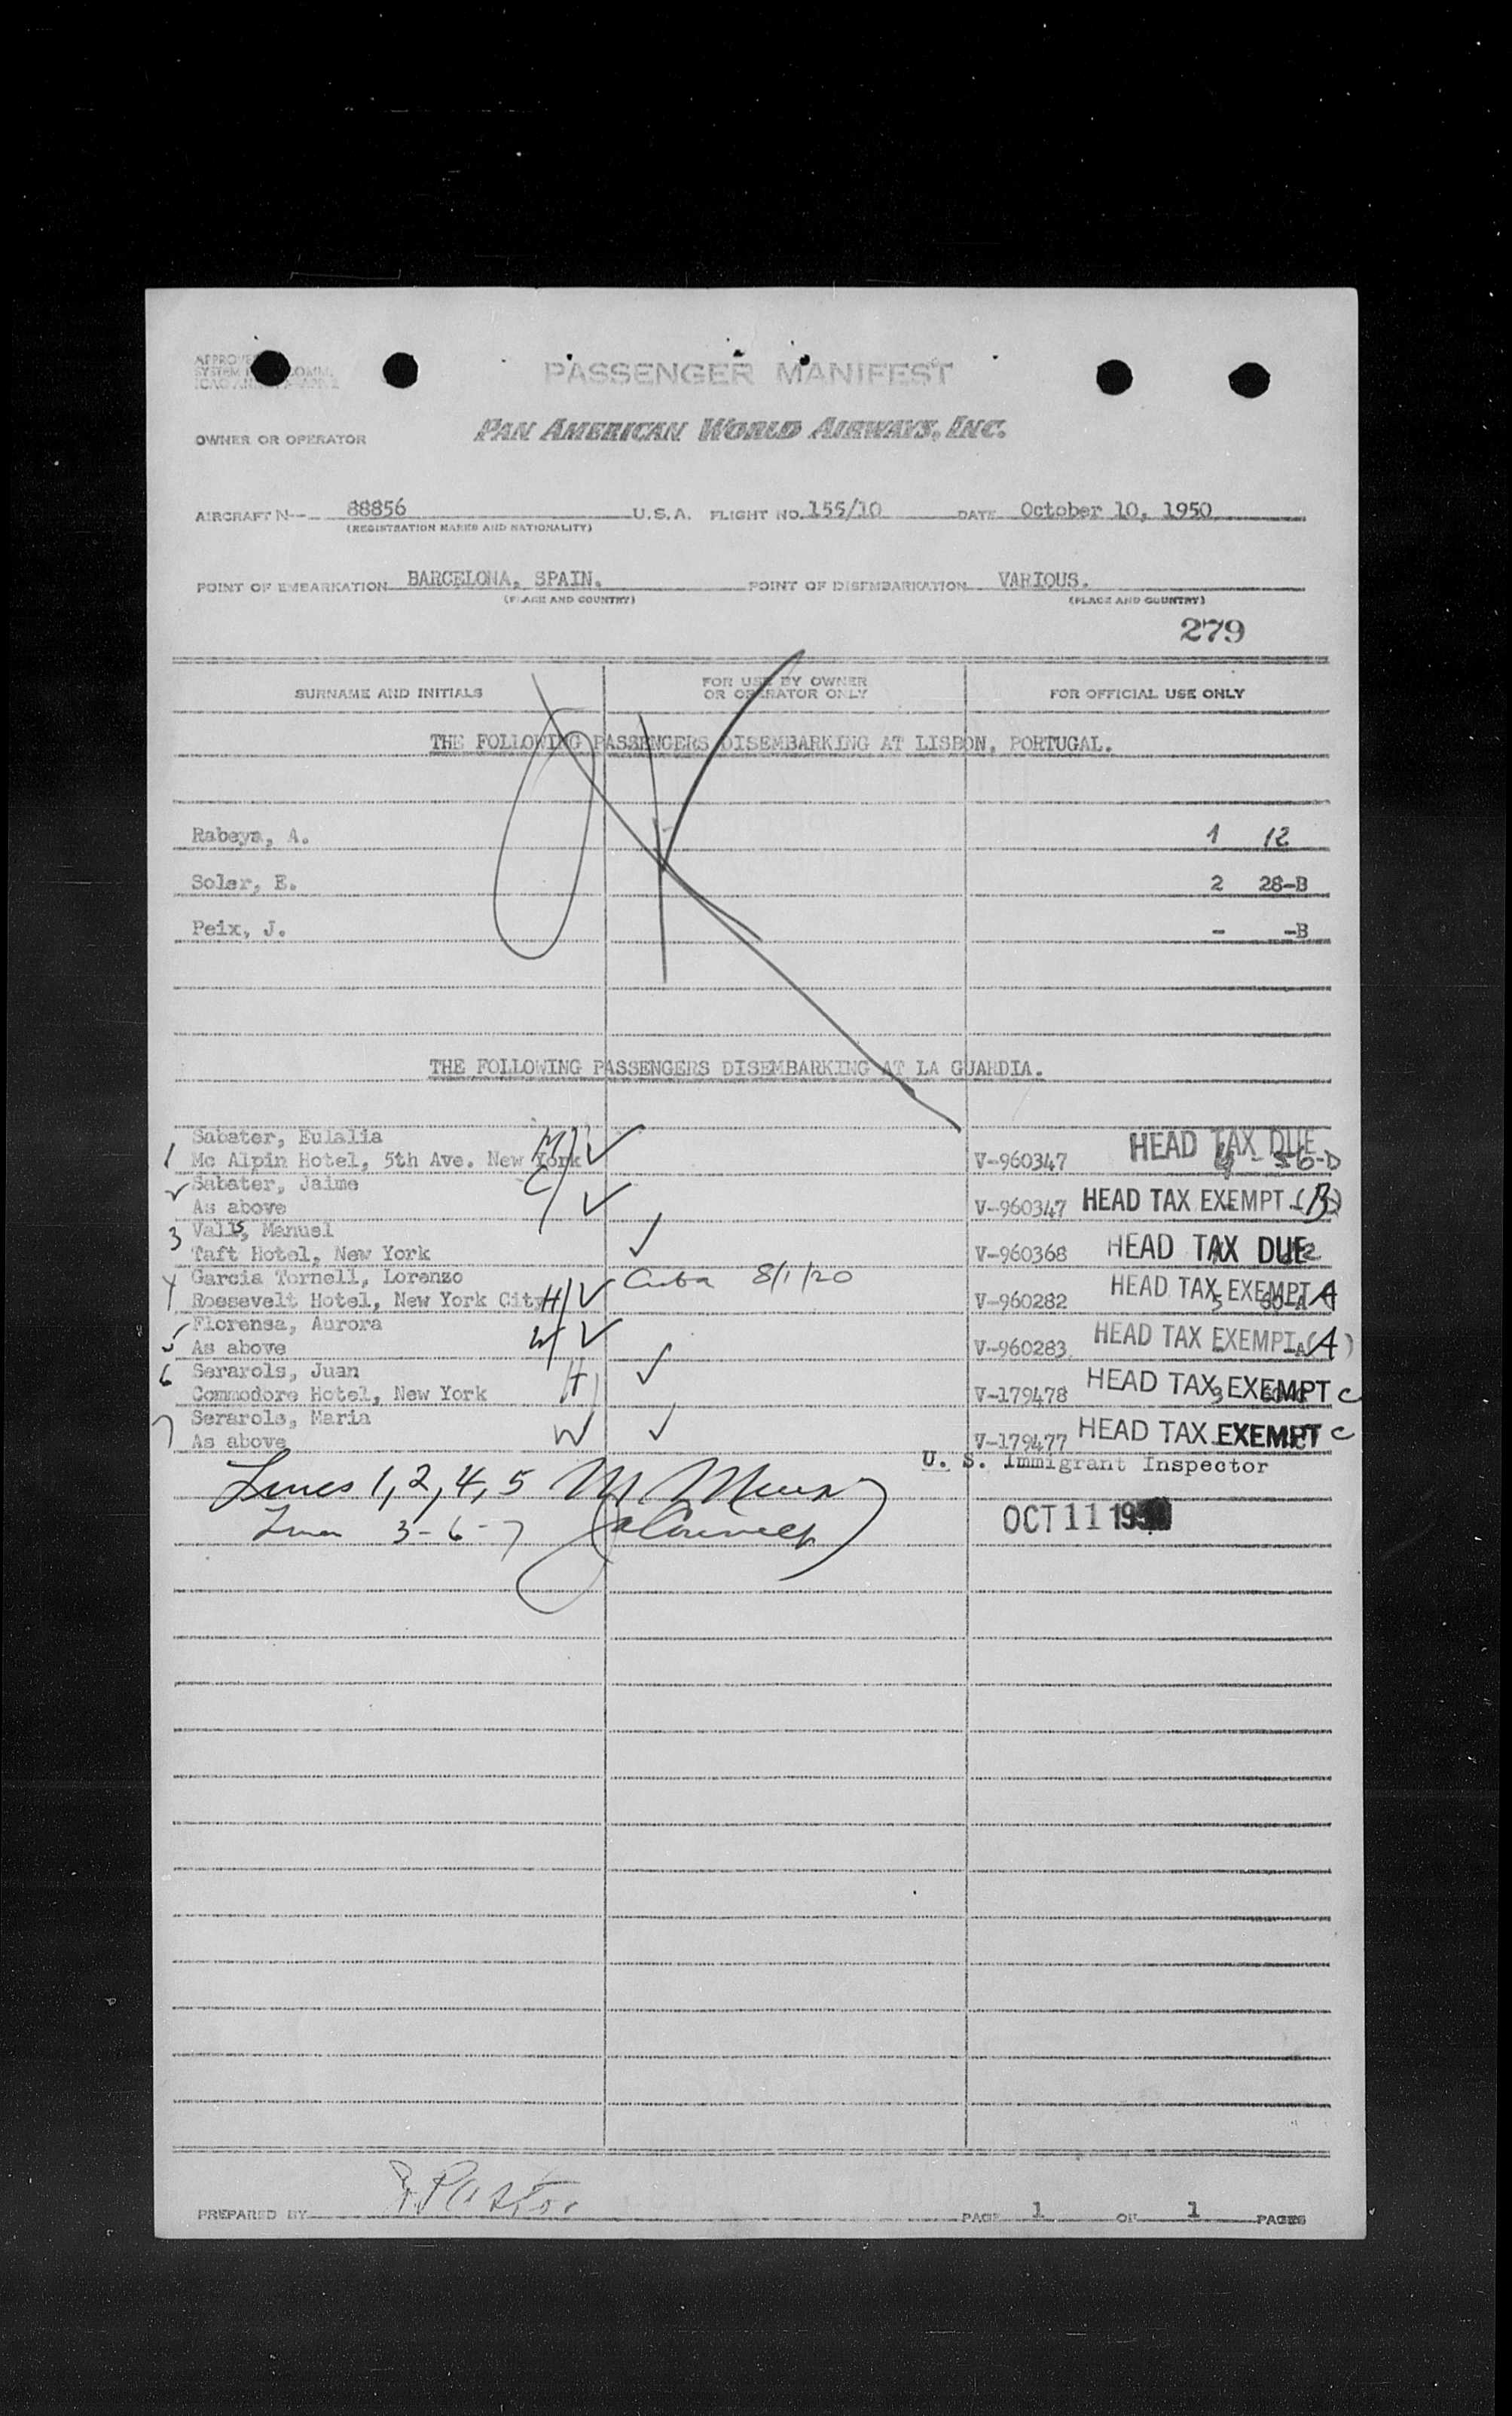 PASSENGER MANIFEST
OWNER OR OPERATOR PAN AMERICAN WORLD AIRWAYS, INC.
AIRCRAFT N-- 88856 U.S.A. FLIGHT NO. 155/10 DATE October 10, 1950
(REGISTRATION MARKS AND NATIONALITY)
POINT OF EMBARKATION BARCELONA, SPAIN. POINT OF DISEMBARKATION VARIOUS.
(PLACE AND COUNTRY) (PLACE AND COUNTRY)
279
SURNAME AND INITIALS FOR USE BY OWNER OR OPERATOR ONLY FOR OFFICIAL USE ONLY
THE FOLLOWING PASSENGERS DISEMBARKING AT LISBON, PORTUGAL.
OK
Rabeya, A. 1 12
Soler, E. 2 28-B
Peix, J. - -B
THE FOLLOWING PASSENGERS DISEMBARKING AT LA GUARDIA.
Sabater, Eulalia M/
1 Mc Alpin Hotel, 5th Ave. New York V-960347 HEAD TAX DUE
2 Sabater, Jaime C/
As above V-960347 HEAD TAX EXEMPT (B)
3 Valls, Manuel
Taft Hotel, New York V-960368 HEAD TAX DUE
4 Garcia Tornell, Lorenzo Cuba 8/1/20
Roosevelt Hotel, New York City H/ V-960282 HEAD TAX EXEMPT A
5 Florensa, Aurora
As above W/ V-960283 HEAD TAX EXEMPT (A)
6 Serarols, Juan H/
Commodore Hotel, New York V-179478 HEAD TAX EXEMPT C
7 Serarols, Maria W
As above V-179477 HEAD TAX EXEMPT C
U. S. Immigrant Inspector
Lines 1, 2, 4, 5 M
3-6-7
OCT 11 19
PREPARED BY Pastor PAGE 1 OF 1 PAGES